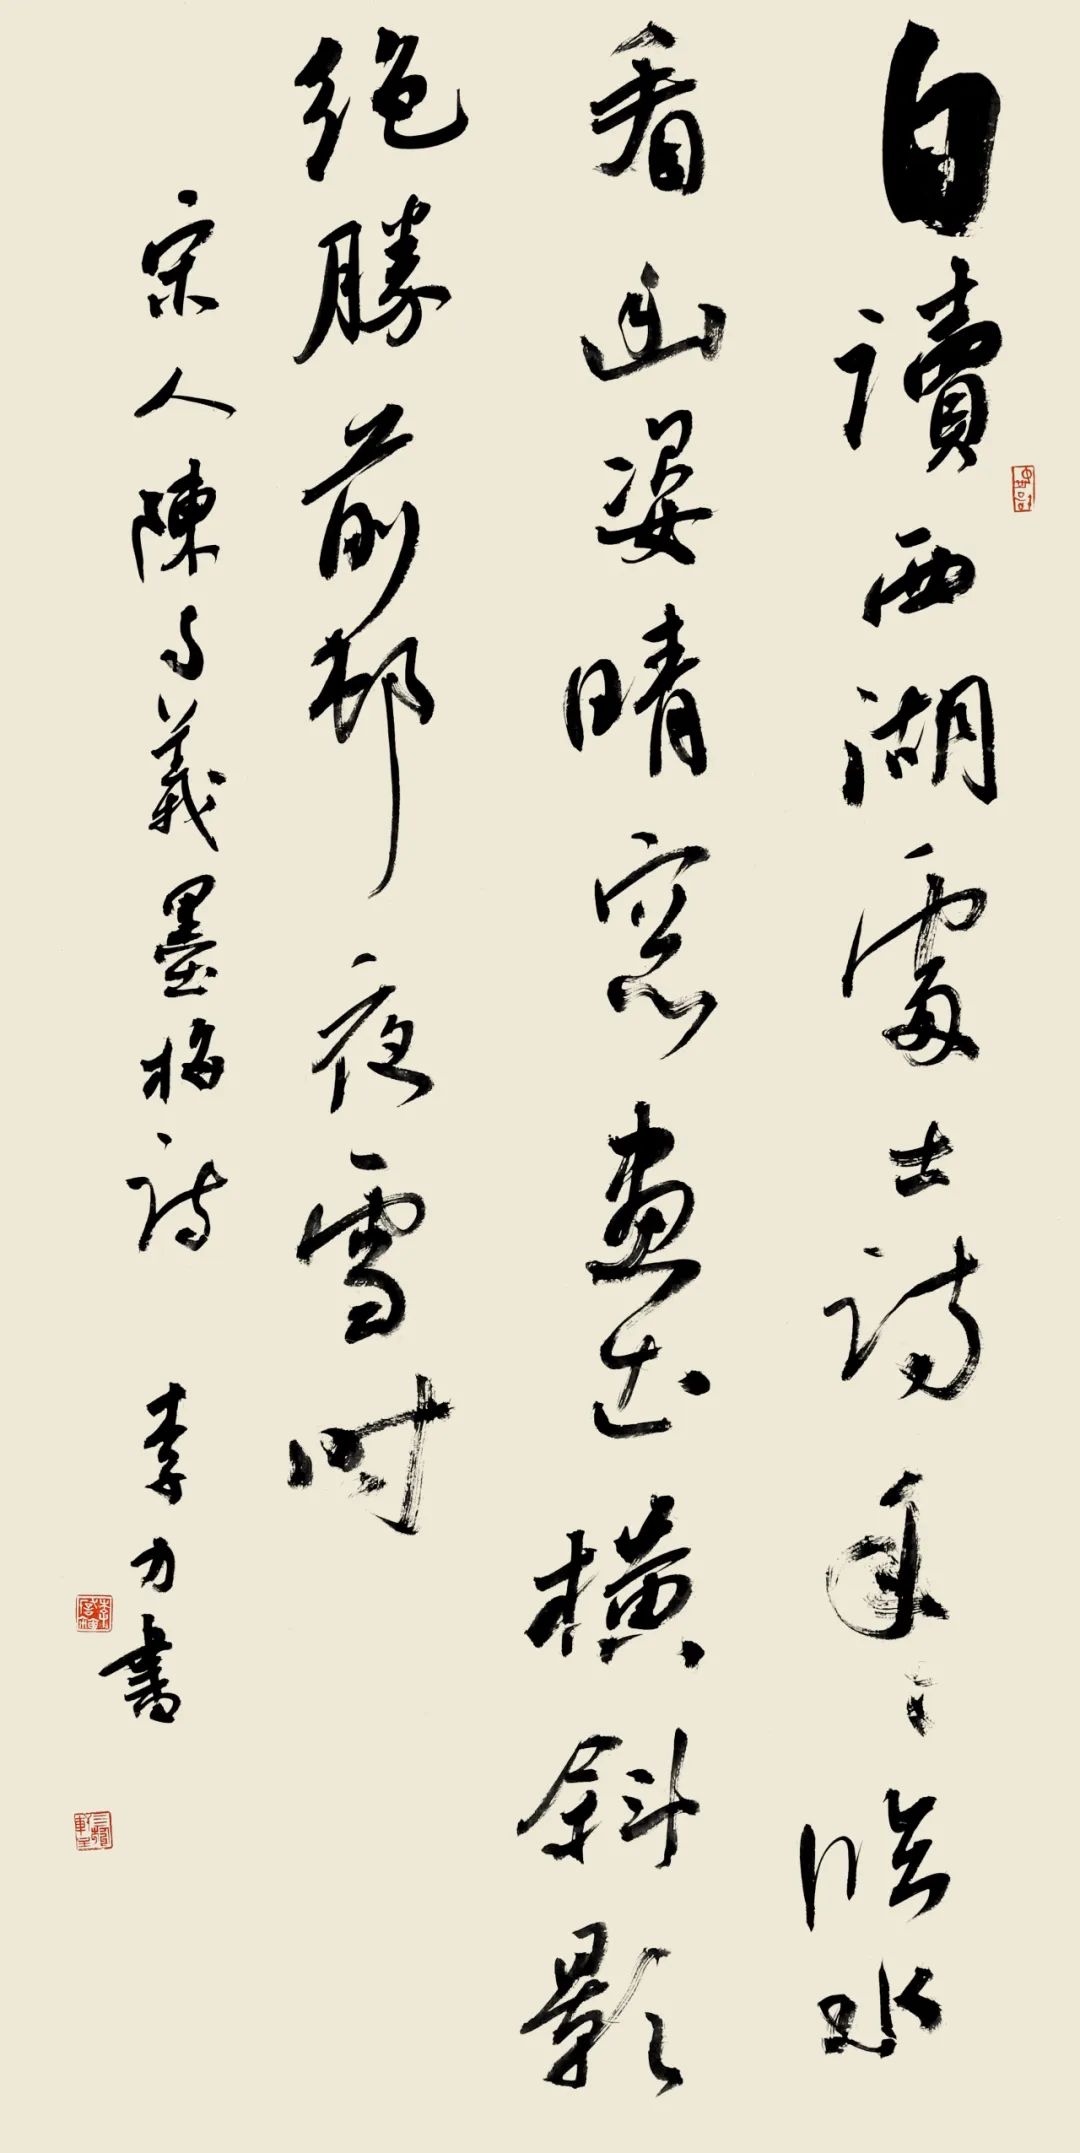 自讀西湖處士詩年々臨水
看幽姿晴窓畫出橫斜影
絶勝前邨夜雪時
宋人陳与義墨梅詩 李力書